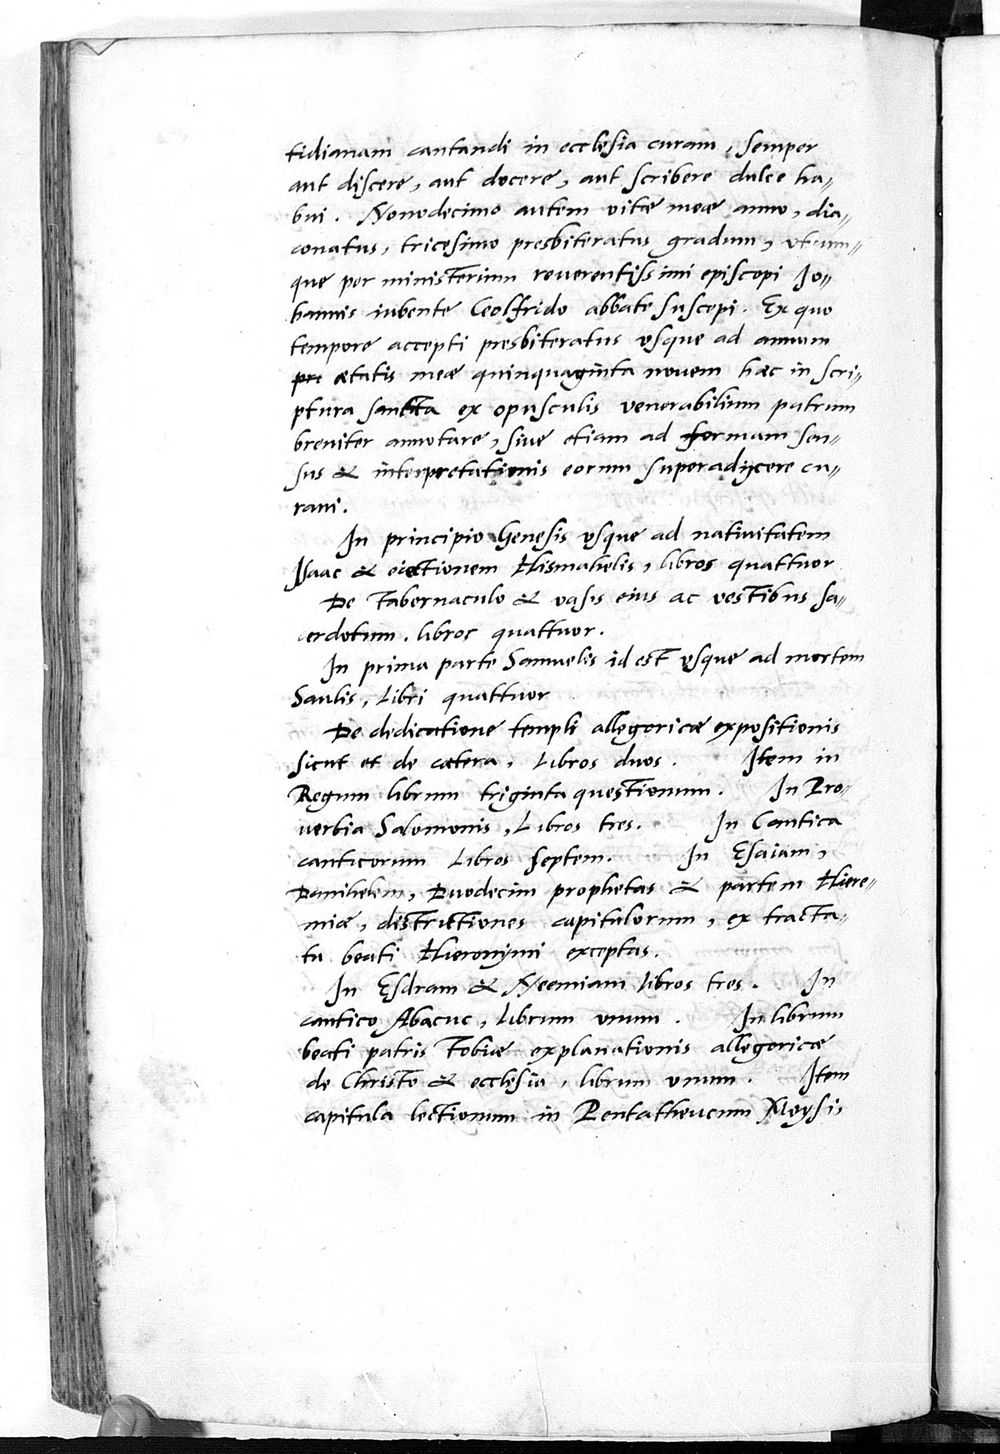 tidianam cantandi in ecclesia curam, semper
aut discere, aut docere, aut scribere dulce ha„
bui. Nonodecimo autem vitæ meæ anno, dia„
conatus, tricesimo presbiteratus gradum, utrum„
que per ministerium reuerentissimi episcopi Jo„
hannis iubente Ceolfrido abbate suscepi. Ex quo
tempore accepti presbiteratus vsque ad annum
ætatis meæ quinquaginta novem hæc in scri„
ptura sancta ex opusculis venerabilium patrum
breviter annotare, sive etiam ad formam sen„
sus & interpretationis eorum superadijcere cu„
raui.
In principio Genesis vsque ad natiuitatem
Isaac & eiectionem Hismahelis, libros quattuor
De Tabernaculo & vasis eius ac vestibus sa„
cerdotum. libros quattuor.
In prima parte Samuelis id est vsque ad mortem
Saulis, Libri quattuor
De dedicatione templi allegoricæ expositionis
sicut et de cætera, Libros duos. Item in
Regum librum triginta questionum. In Pro„
uerbia Salomonis, Libros tres. In Cantica
canticorum Libros septem. In Esaiam,
Danihelem, Duodecim prophetas & partem Hiere„
miæ, distinctiones capitulorum, ex tracta„
tu beati Hieronymi exceptas.
In Esdram & Neemiam libros tres. In
cantico Abacuc, librum vnum. In librum
beati patris Tobiæ explanationis allegoricæ
de Christo & ecclesia, librum vnum. Item
capitula lectionum in Pentatheucum Moysi,